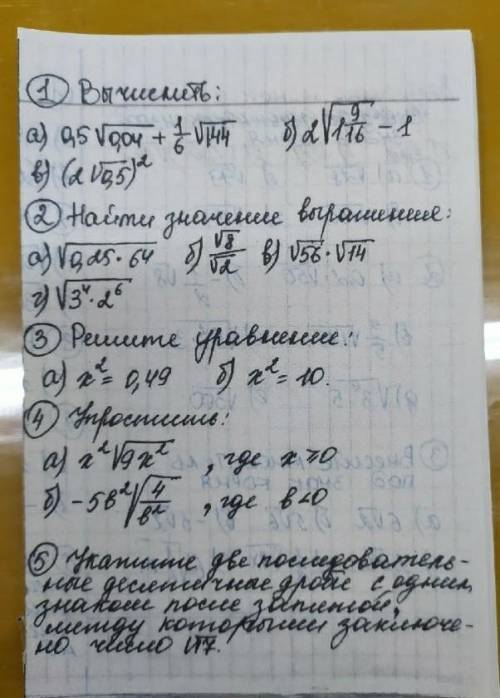 ① Вычислить:
а) 0,5√0,04 + 1/6 √144 б) 2√(1 9/16) − 1
в) (2√0,5)²
② Найти значение выражения:
а) √(0,25 · 64) б) √8/√2 в) √56 · √14
г) √(3⁴ · 2⁶)
③ Решите уравнение:
а) x² = 0,49 б) x² = 10.
④ Упростить:
а) x²√(9x²), где x ≥ 0
б) −5в²√(4/в²), где в < 0
⑤ Укажите две последователь-
ные десятичные дроби с одним
знаком после запятой,
между которыми заключе-
но число √17.